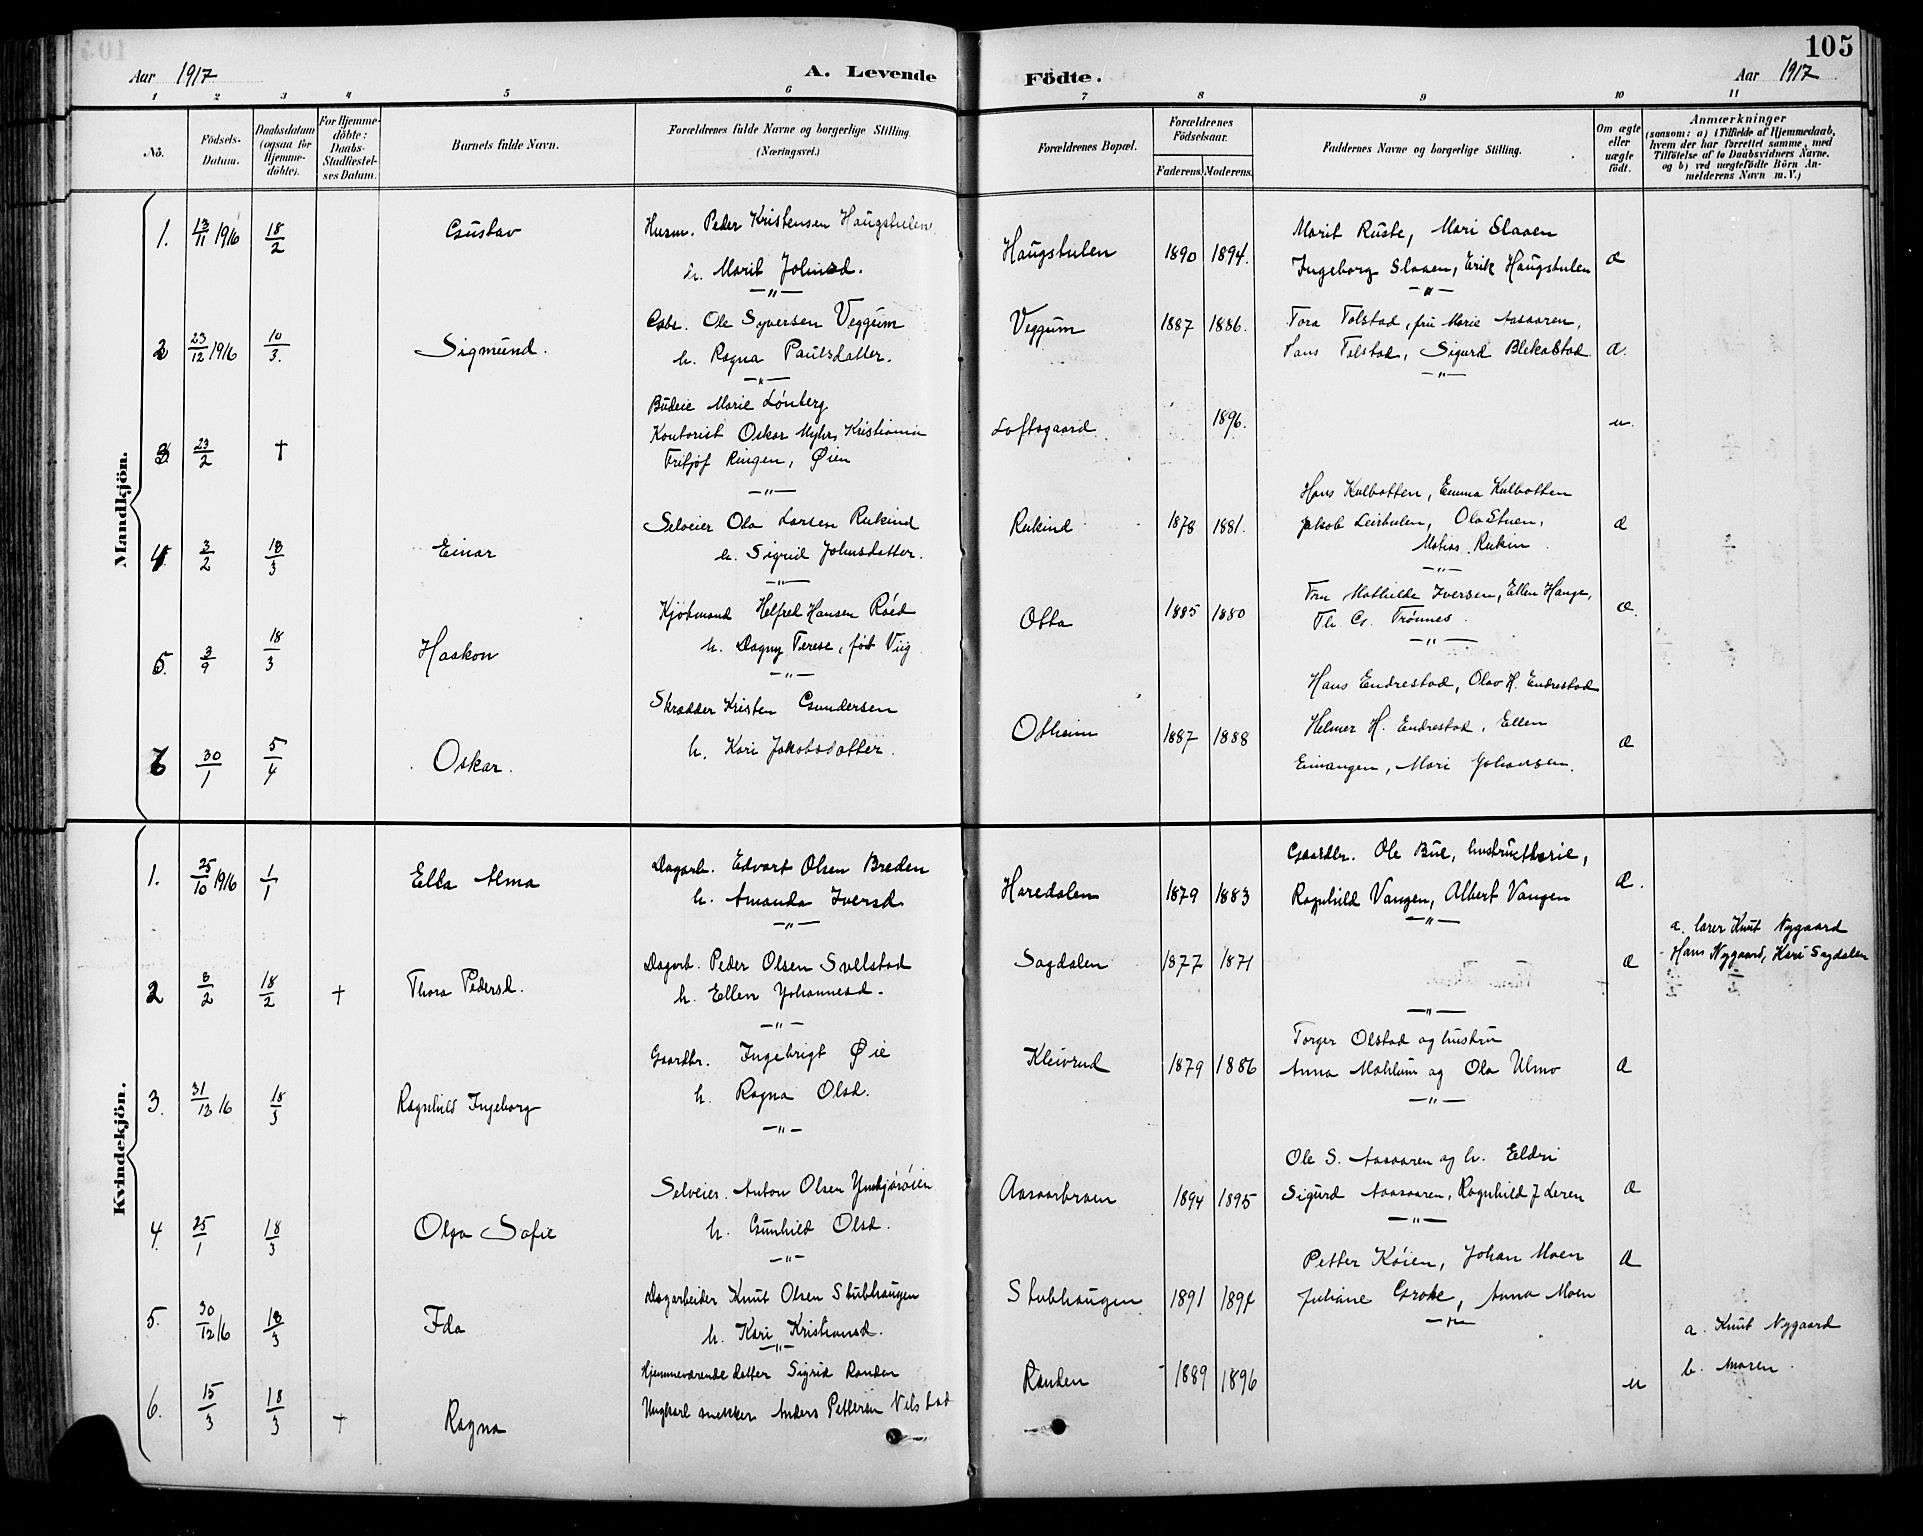 105
Aar 1917
A. Levende Födte.
Aar 1917
1 2 3 4 5 6 7 8 9 10 11
No.
Födsels-Datum.
Daabsdatum (ogsaa for Hjemme-döbte).
For Hjemme-döbte: Daabs-Stadfæstel-ses Datum.
Barnets fulde Navn.
Forældrenes fulde Navne og borgerlige Stilling (Næringsvei.)
Forældrenes Bopæl.
Forældrenes Födselsaar.
Faderens. Moderens.
Faddernes Navne og borgerlige Stilling.
Om ægte eller uægte födt.
Anmærkninger
(saasom: a) i Tilfælde af Hjemmedaab, hvem der har forrettet samme, med Tilföielse af to Daabsvidners Navne. og b) ved uægtefödte Börn An-melderens Navn m. V.)
Mandkjön.
1. 13/11 1916 18/2 Gustav
Husm. Peder Kristensen Haugstulen
h. Marit Johnsd.
Haugstulen 1890 1894.
Marit Ruste, Mari Slaaen
Ingeborg Slaaen, Erik Haugstulen æ
2 23/12 1916 10/3. Sigmund.
Gbr. Ole Syversen Veggum
h. Ragna Paulsdatter.
Veggum 1887 1886.
Tora Tolstad, fru Marie Aasaaren,
Hans Tolstad, Sigurd Blekastad æ.
3 23/2 †
Budeie Marie Lönberg
Kontorist Oskar Myhr, Kristiania
Fritjof Ringen, Øien
Loftsgaard 1896. u.
4 3/2 18/3 Einar
Selveier Ola Larsen Rukind
h. Sigrid Johnsdatter.
Rukind 1878 1881.
Hans Kulbotten, Emma Kulbotten
Jakob Leirhulen, Ola Stuen,
Matias Rukin æ
5. 3/9 18/3 Haakon
Kjöbmand Helfred Hansen Röed
h. Dagny Terese, föd Viig
Otta 1885 1880
Fru Mathilde Iversen, Ellen Hauge,
Th. G. Trönnes. æ
6 30/1 5/4 Oskar.
Skrædder Kristen Gundersen
h. Kari Jakobsdatter.
Ottheim 1887 1888
Hans Endrestad, Olav H. Endrestad
Helmer H. Endrestad, Ellen
Eimangen, Mari Johansen. æ
Kvindekjön.
1. 25/10 1916 1/1 Ella Alma
Dagarb. Edvart Olsen Breden
h. Amanda Iversd.
Haredalen 1879 1883
Gaardbr. Ole Bue, hustru Marie,
Ragnhild Vangen, Albert Vangen æ.
2 8/2 18/2 † Thora Pedersd.
Dagarb. Peder Olsen Svelstad
h. Ellen Johannesd.
Sagdalen 1877 1871 æ
a. lærer Knut Nygaard
Hans Nygaard, Kari Sagdalen
3. 31/12 16 18/3 Ragnhild Ingeborg
Gaardbr. Ingebrigt Øie
h. Ragna Olsd.
Kleivrud 1879 1886
Torger Olstad og hustru
Anna Mæhlum og Ola Ulmo æ
4. 25/1 18/3 Olga Sofie
Selveier. Anton Olsen
h. Gunhild Olsd.
Aasaarbraen 1894 1895
Ole S. Aasaaren og h. Eldri
Sigurd Aasaaren, Ragnhild J Leren æ
5. 30/12 16 18/3 Ida
Dagarbeider Knut Olsen Stubhaugen
h. Kari Kristiansd.
Stubhaugen 1891 1894
Petter Köien, Johan Moen
Juliane Grote, Anna Moen æ
6. 15/3 18/3 † Ragna
Hjemmeværende datter Sigrid Randen
Ungkarl snekker Anders Pettersen Nilstad
Randen 1889 1896 u
a. Knut Nygaard
b. Moren.